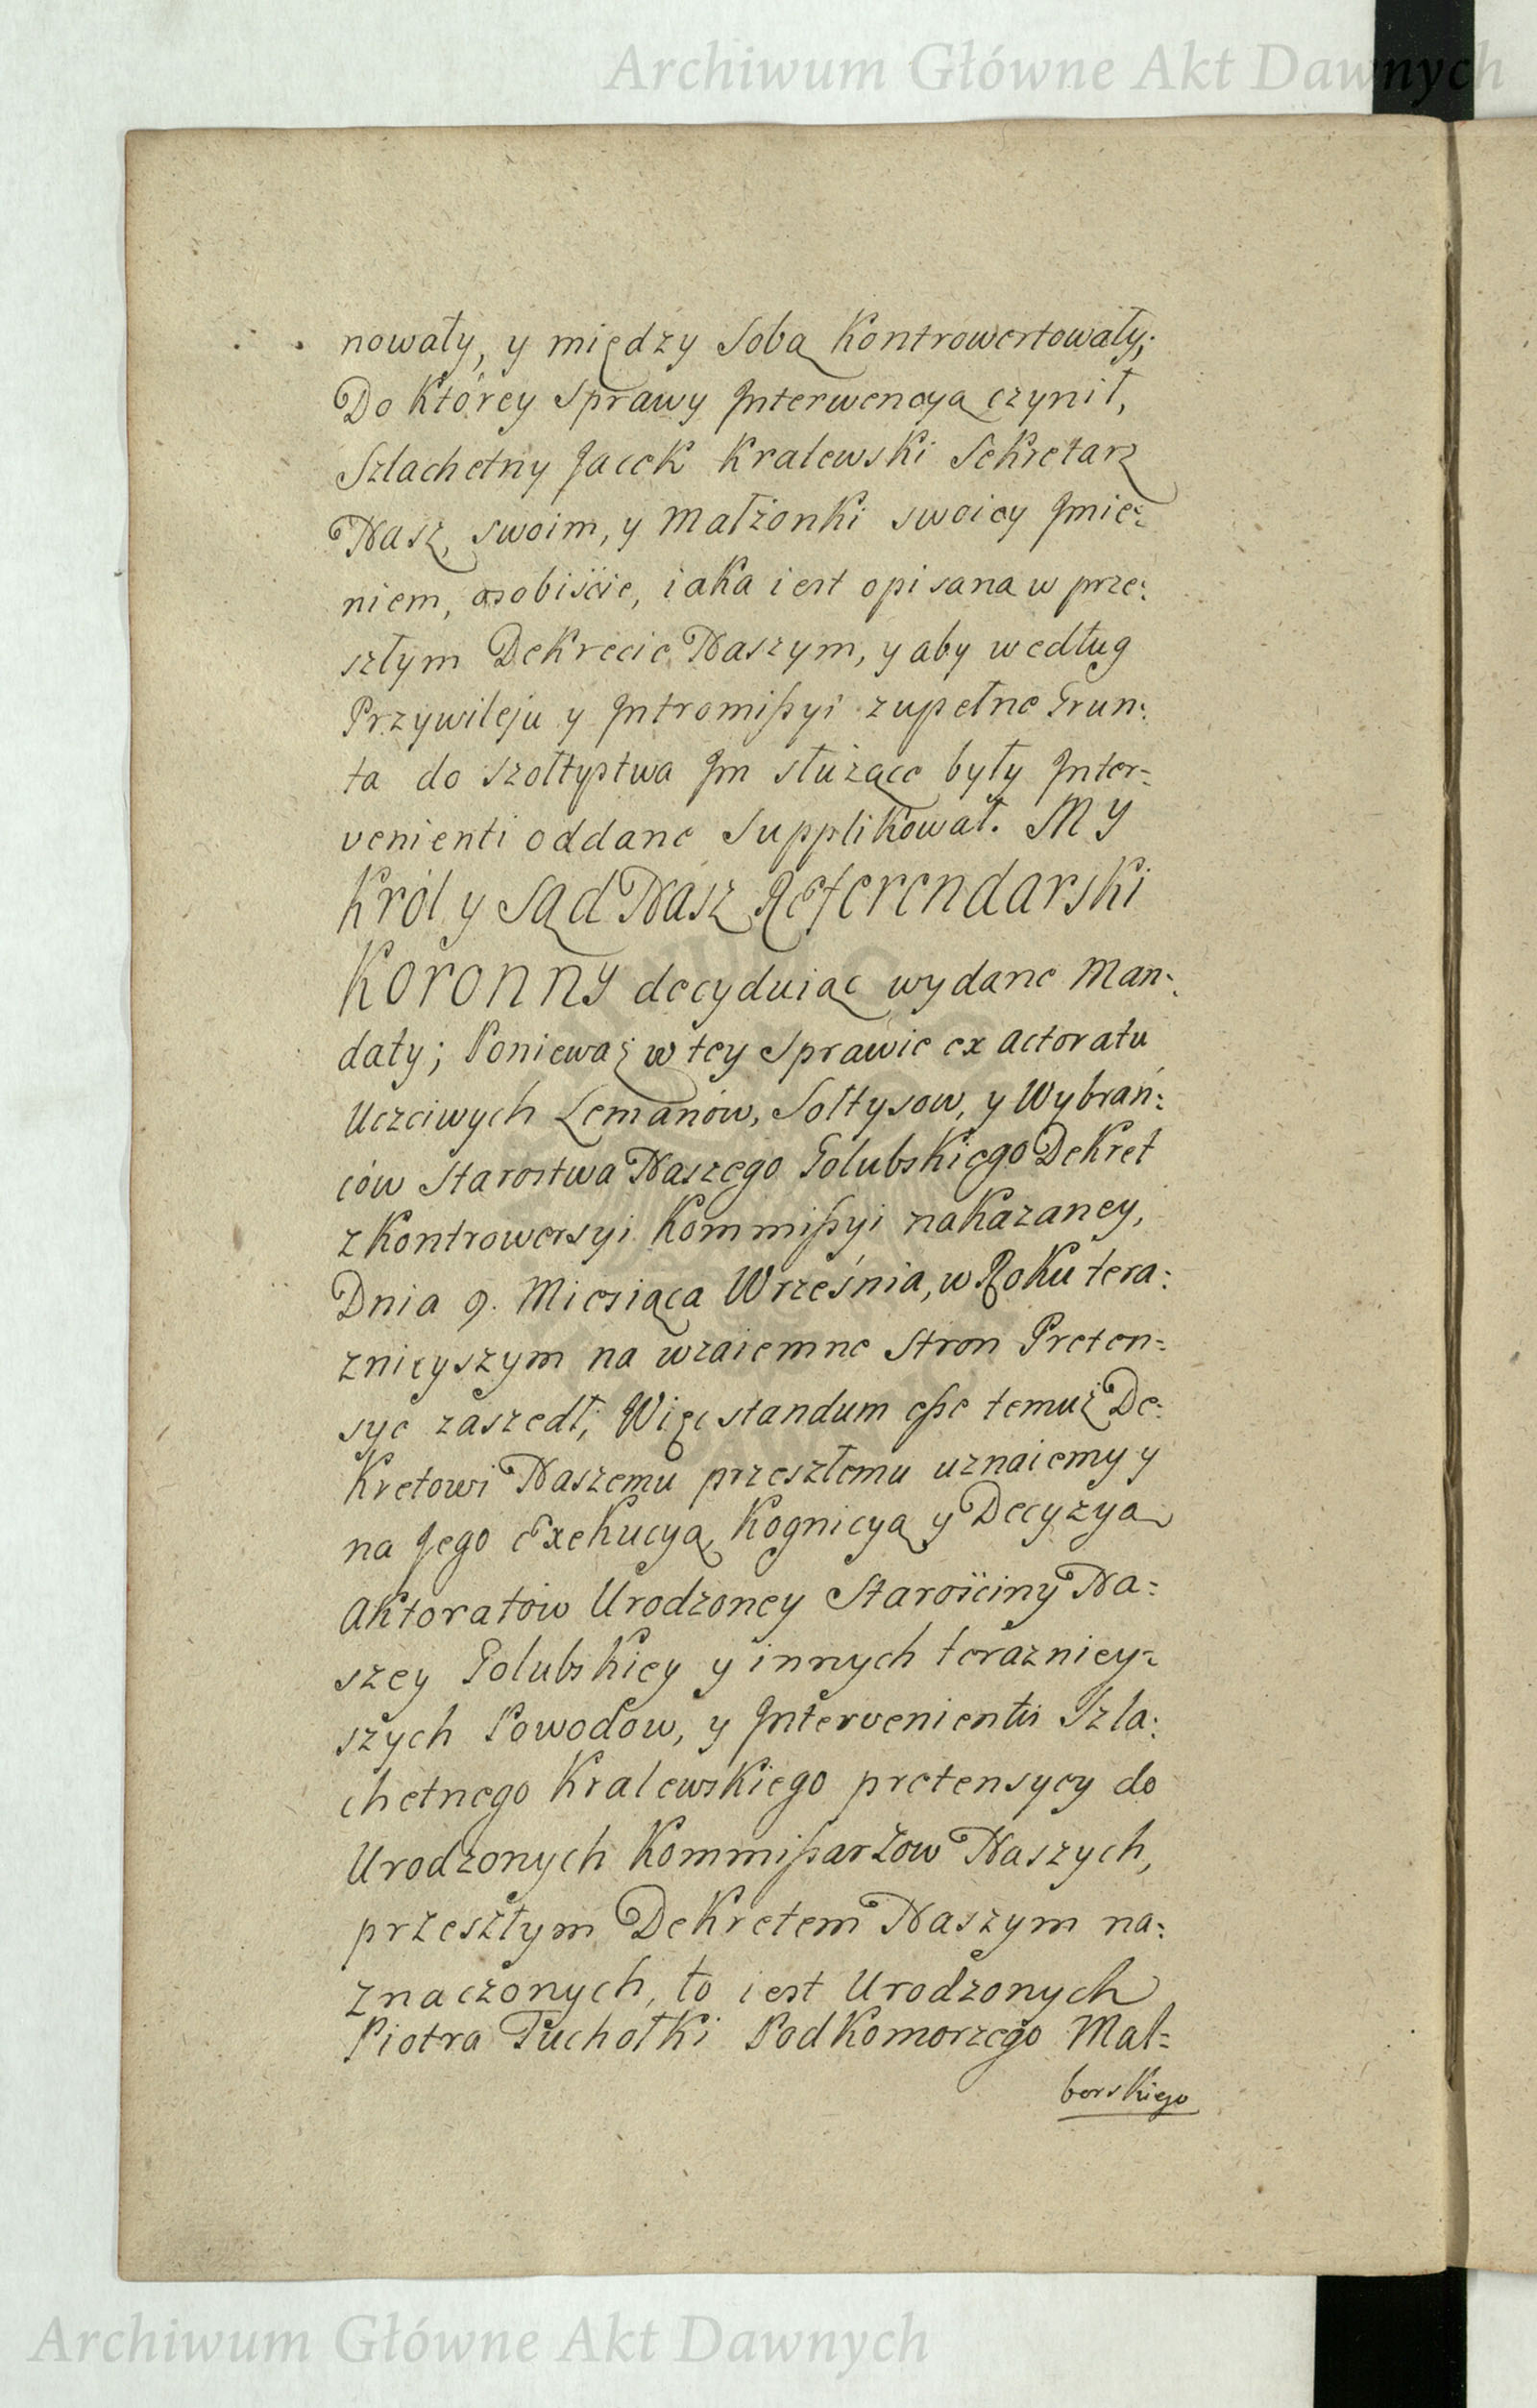 Archiwum Główne Akt Dawnych
nowały, y między sobą Kontrowertowały;
Do Którey Sprawy Interwencyą czynił,
Szlachetny Jacek Kralewski Sekretarz
Nasz, swoim, y Małżonki swoiey Jmie:
niem, osobiście, iaka iest opisana w prze:
szłym Dekrecie Naszym, y aby według
Przywileju y Intromißyi zupełne Grun:
ta do szołtystwa Jm służące były Inter:
venienti oddane Supplikował. MY
Król y Sąd Nasz Referendarski
Koronny decyduiąc wydane Man:
daty; Ponieważ w tey Sprawie ex actoratu
Uczciwych Lemanów, Sołtysow, y Wybrań:
ców Starostwa Naszego Golubskiego Dekret
z Kontrowersyi Kommißyi nakazaney,
Dnia 9. Miesiąca Września, w Roku tera:
znieyszym na wzaiemne Stron Preten:
sye zaszedł; Więc standum eße temuż De:
kretowi Naszemu przeszłemu uznaiemy y
na Jego Exekucyą, Kognicyą y Decyzyą
Aktoratow Urodzoney Starościny Na:
szey Golubskiey y innych terazniey:
szych Powodow, y Intervenientis Szla:
chetnego Kralewskiego pretensyey do
Urodzonych Kommißarzow Naszych,
przeszłym Dekretem Naszym na:
znaczonych, to iest Urodzonych
Piotra Tuchołki Podkomorzego Mal:
borskiego
Archiwum Główne Akt Dawnych